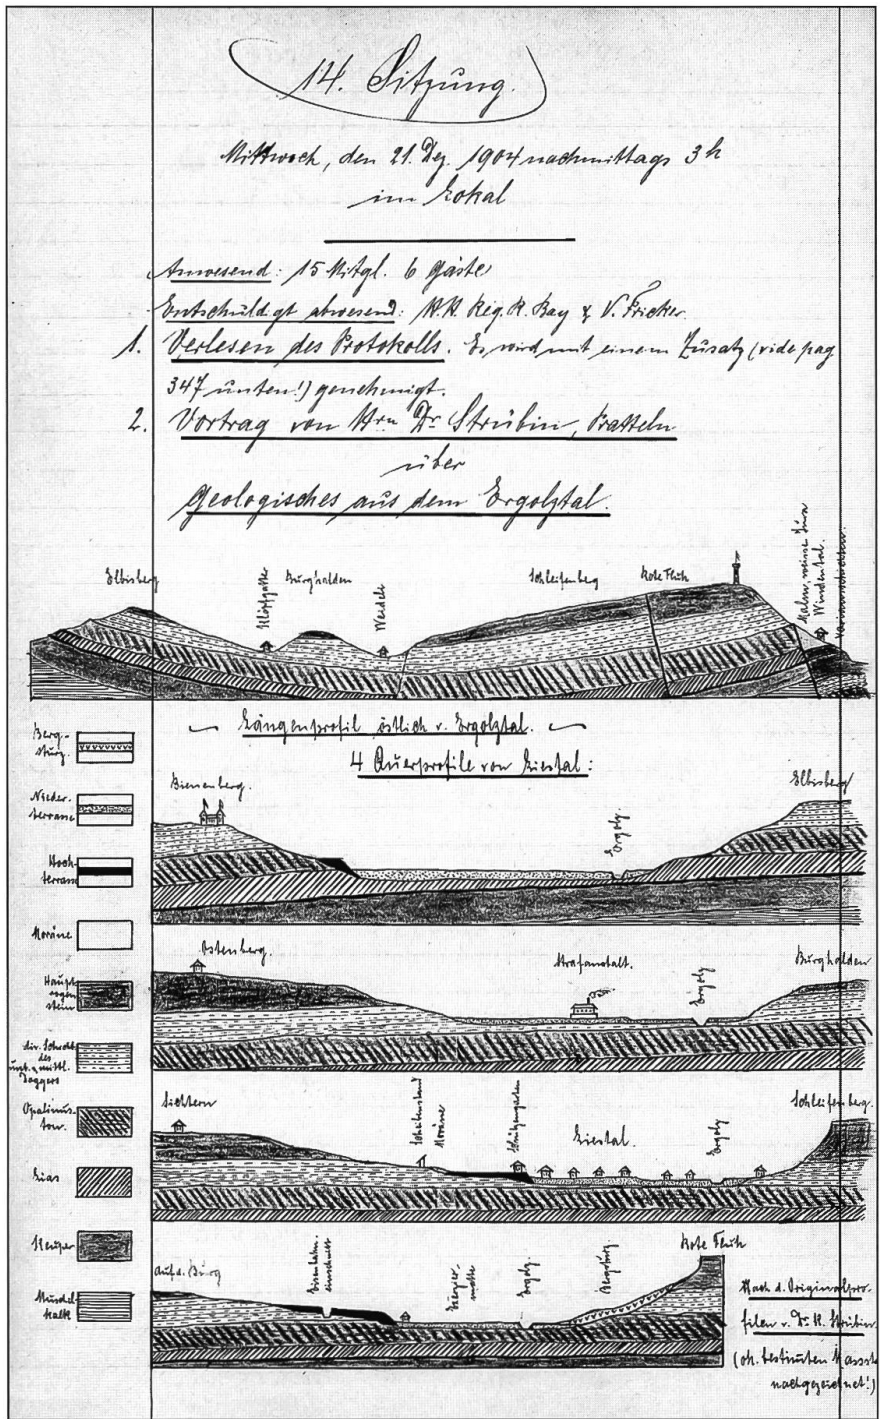 14. Sitzung.
Mittwoch, den 21. Dez. 1904 nachmittags 3 h
im Lokal
Anwesend: 15 Mitgl. 6 Gäste
Entschuldigt abwesend: H.H. Reg. R. Bay & V. Fricker.
1. Verlesen des Protokolls. Es wird mit einem Zusatz (vide pag
347 unten!) genehmigt.
2. Vortrag von Hrn Dr Strübin, Pratteln
über
Geologisches aus dem Ergolztal.
Elbisberg
Burghalden
Weideli
Schleifenberg
Rote Fluh
Malm, weisser Jura
Windental.
Längenprofil östlich v. Ergolztal.
4 Querprofile von Liestal:
Berg-
sturz.
Nieder-
terrasse
Hoch-
terrasse
Moräne
Haupt
rogen
stein
div. Schicht.
des
unt. & mittl.
Doggers
Opalinus-
ton.
Lias
Keuper
Muschel
kalk
Bienenberg.
Ergolz.
Elbisberg
Ostenberg.
Strafanstalt.
Ergolz
Burghalden
Sichtern
Schützenstand
Moräne
Schützengarten
Liestal.
Ergolz
Schleifenberg.
Auf d. Burg
Eisenbahn-
einschnitt
matte
Ergolz.
Bergsturz.
Rote Fluh
Nach d. Originalpro-
filen v. Dr. K. Strübin
(oh. bestimten Massst.
nachgezeichnet!)